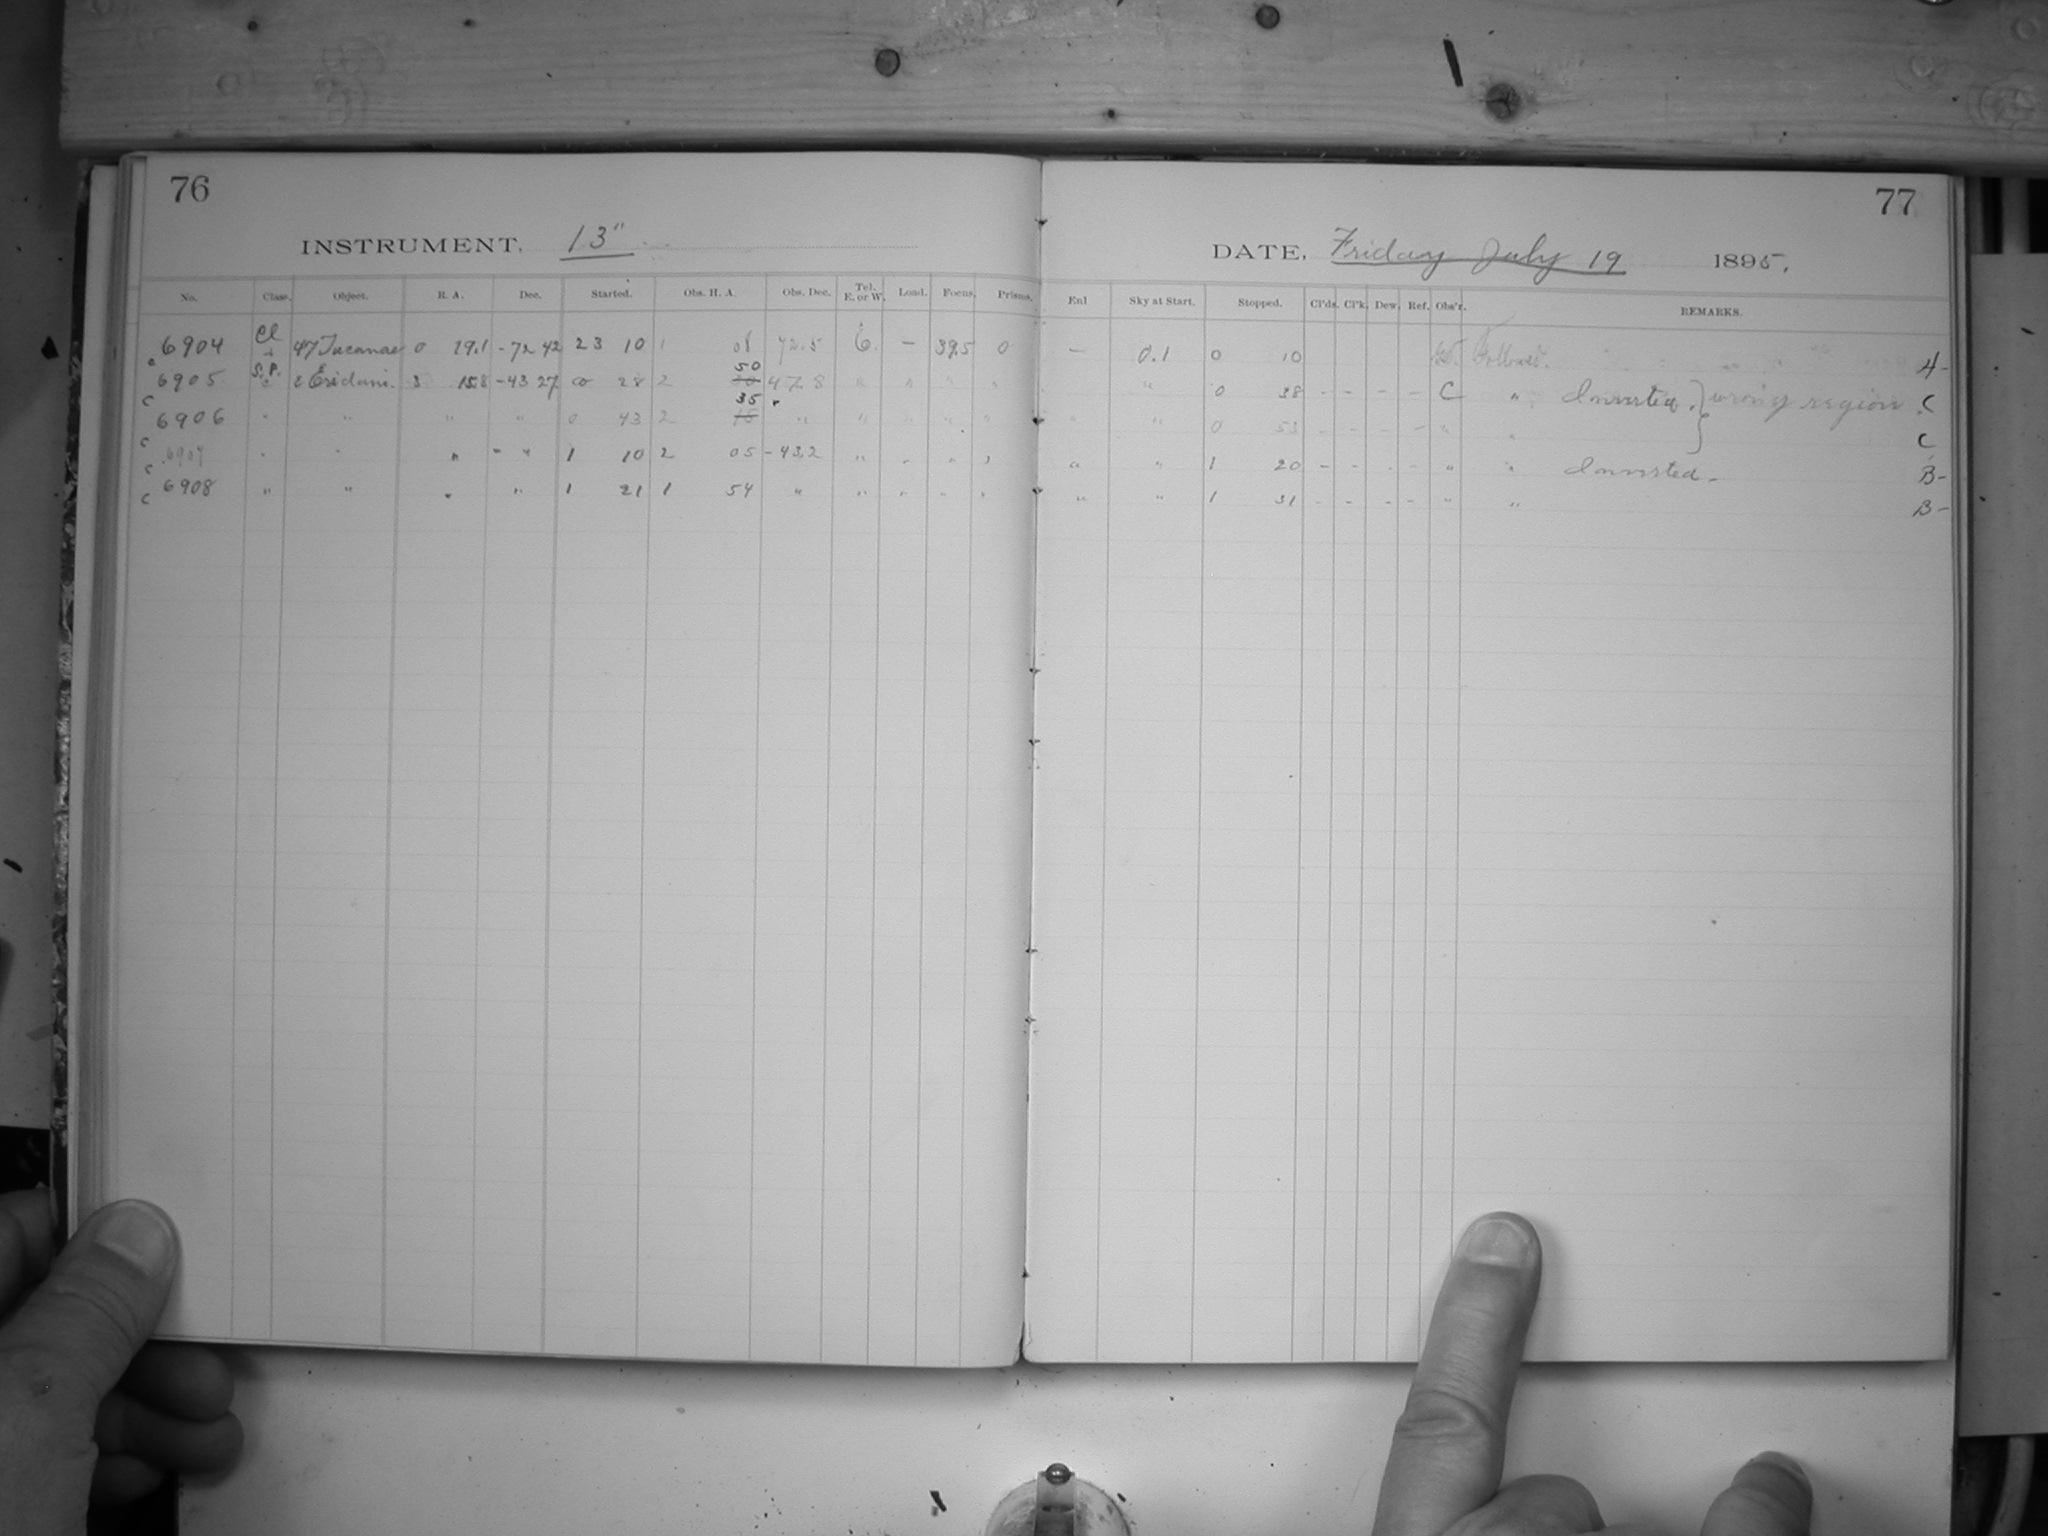 76
INSTRUMENT, 13"
No. Class. Object. R. A. Dec. Started. Obs. H. A. Obs. Dec. Tel. E. or W. Load. Focus. Prisms.
6904 Cl 47 Tucanae 0 19.1 -72 42 23 10 1 08 72.5 E. — 39.5 0
c 6905 S.P. e Eridani. 3 15.8 -43 27 0 28 2 50 47.8 " " " "
c 6906 " " " " 0 43 2 35 " " " " "
c 6907 " " " " 1 10 2 05 -43.2 " " " "
c 6908 " " " " 1 21 1 54 " " " " "
77
DATE, Friday July 19 1895.
Enl Sky at Start. Stopped. Cl'ds. Cl'k. Dew. Ref. Obs'r. REMARKS.
— 0.1 0 10 Followed. A-
" 0 38 - - - - C " Inverted. } wrong region. C
" " 0 53 - - - - " " C
" " 1 20 - - - - " " Inverted. B-
" " 1 31 - - - - " " B-